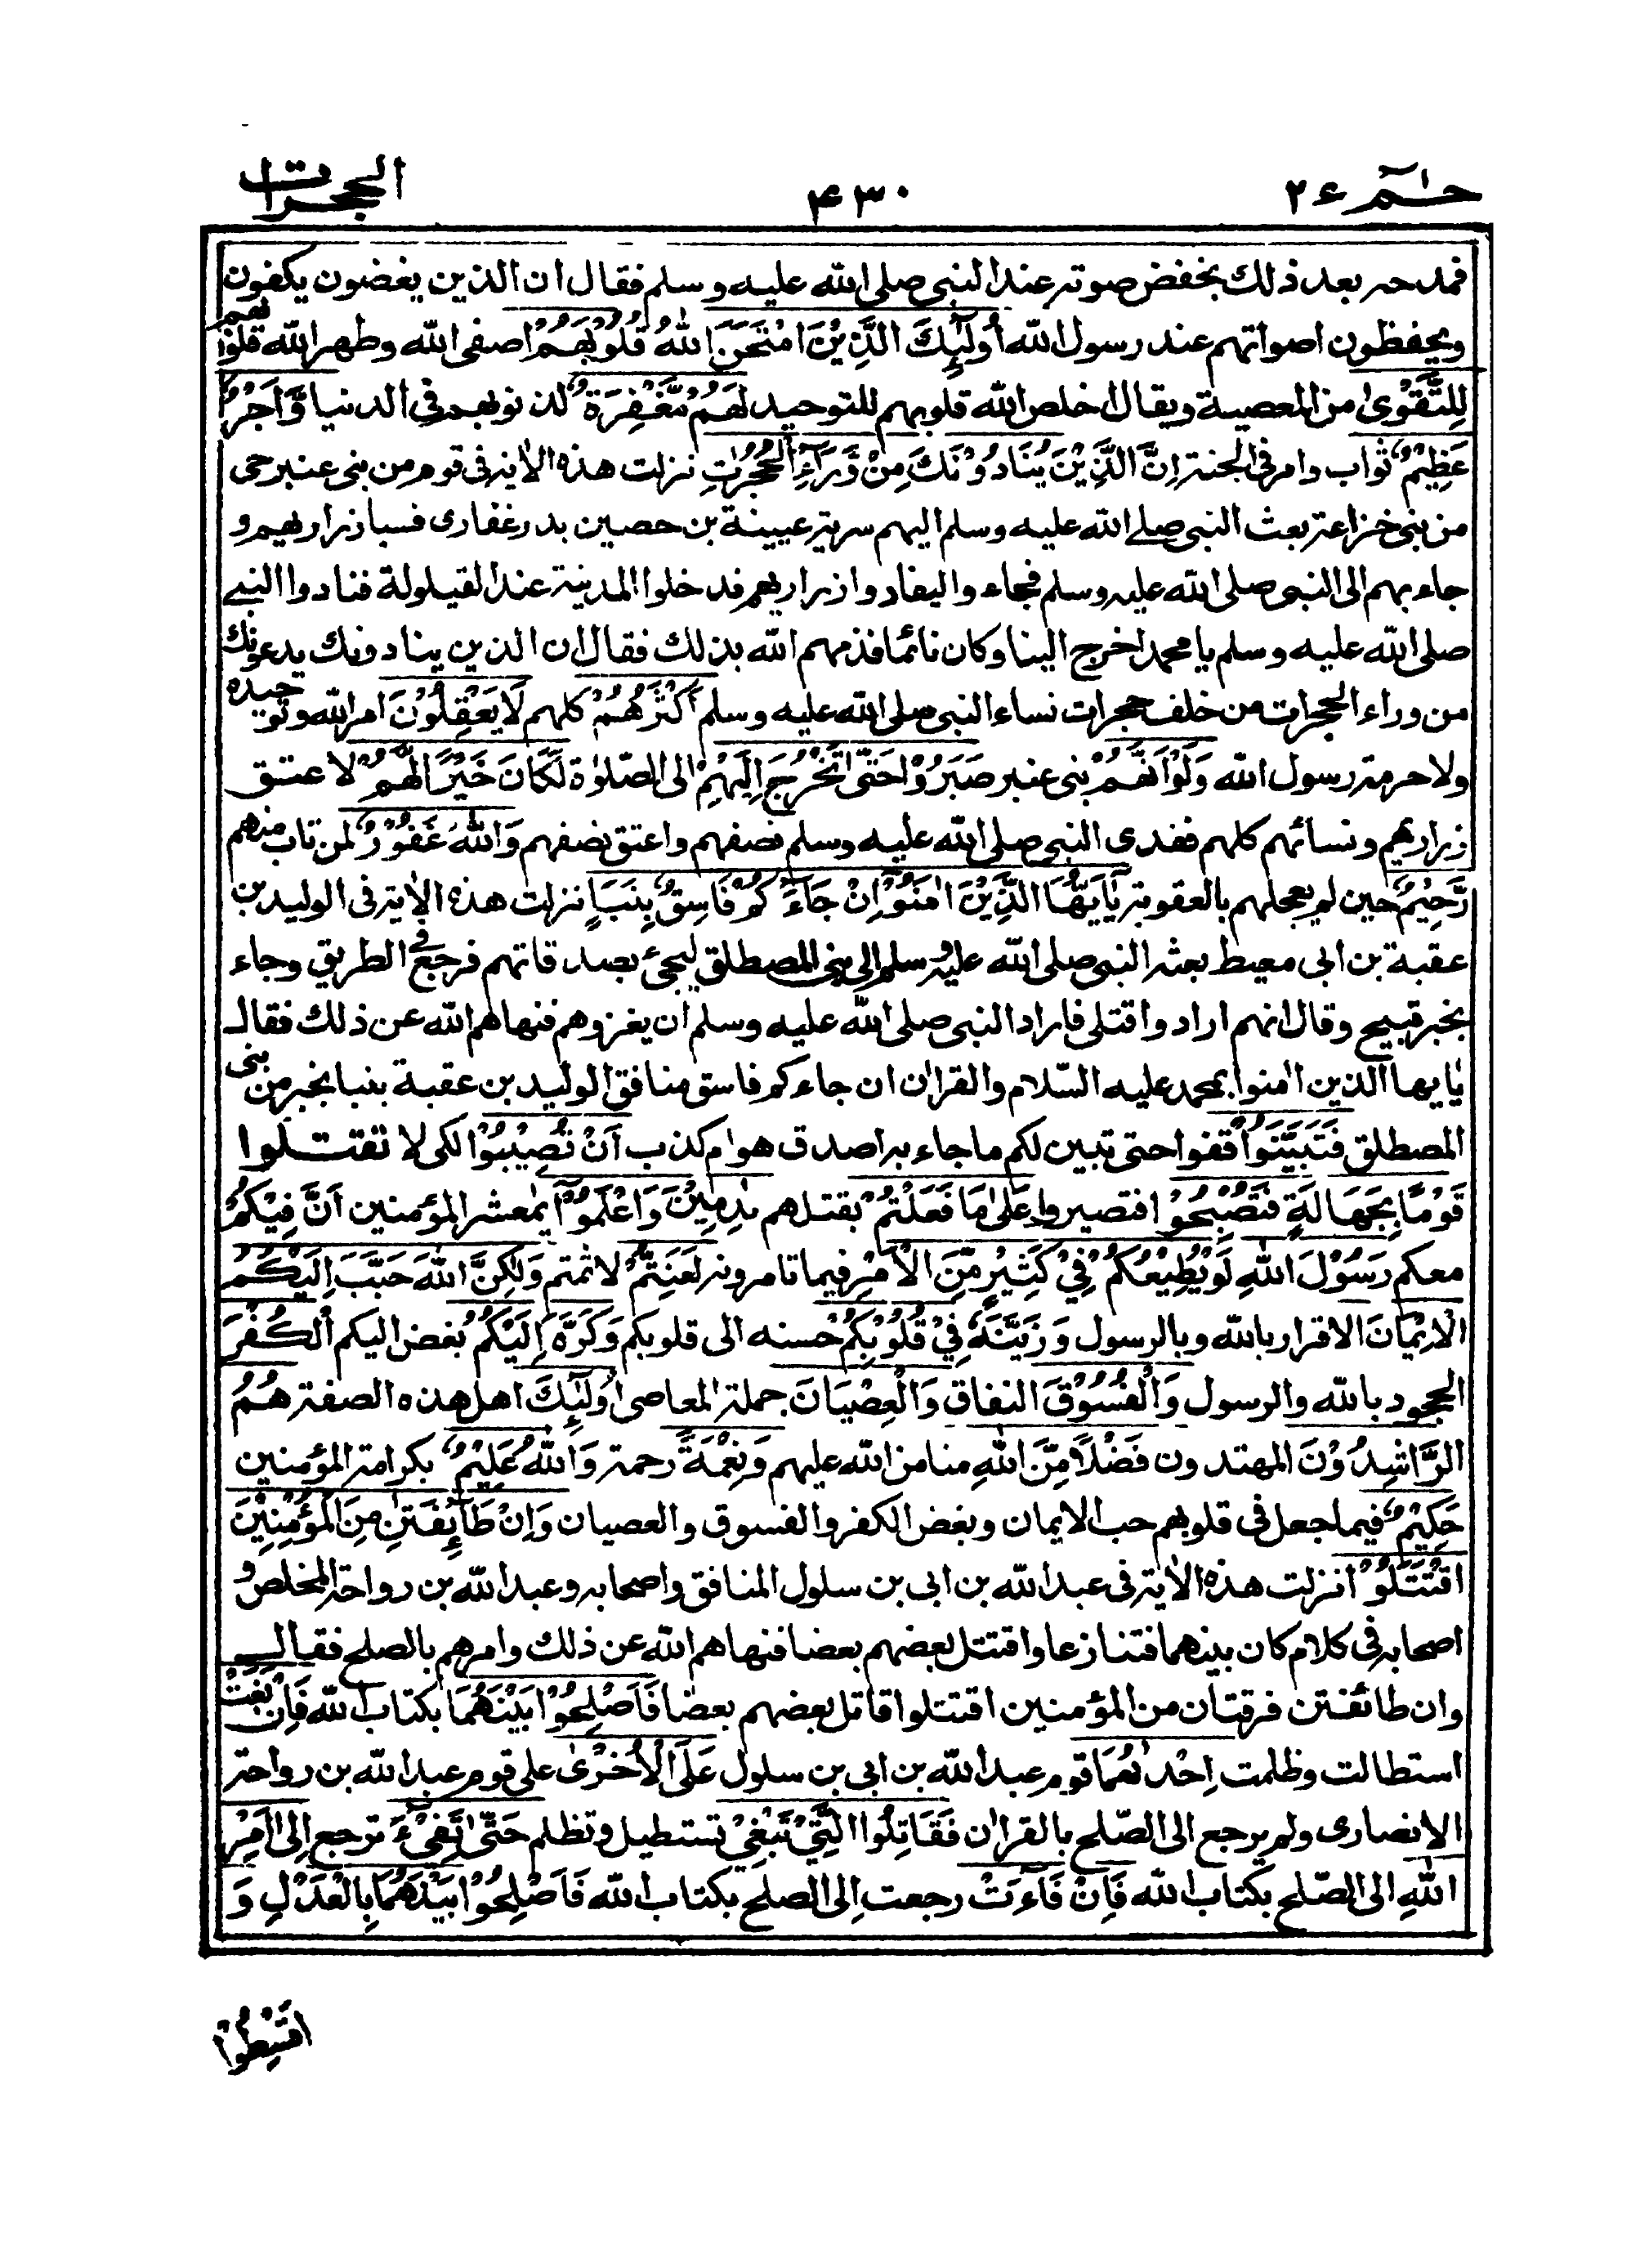 حٰـمٓ ۲٤
۴۳۰
الحجرات
فمدحه بعد ذلك بخفض صوته عند النبى صلى الله عليه وسلم فقال ان الذين يغضون يكفون
ويحفظون اصواتهم عند رسول الله اُولٰٓئِكَ الَّذِيْنَ امْتَحَنَ اللّٰهُ قُلُوْبَهُمْ اصفى الله وطهر الله قلوبهم
لِلتَّقْوٰى من المعصية ويقال اخلص الله قلوبهم للتوحيد لَهُمْ مَّغْفِرَةٌ لذنوبهم فى الدنيا وَّاَجْرٌ
عَظِيْمٌ ثواب وافر فى الجنة اِنَّ الَّذِيْنَ يُنَادُوْنَكَ مِنْ وَّرَآءِ الْحُجُرٰتِ نزلت هذه الاٰية فى قوم من بنى عنبر حى
من بنى خزاعة بعث النبى صلے الله عليه وسلم اليهم سرية عيينة بن حصين بدر غفارى فسبا ذراريهم و
جاء بهم الى النبى صلى الله عليه وسلم فجاء واليفادوا ذراريهم فدخلوا المدينة عند القيلولة فنادوا النبے
صلى الله عليه وسلم يا محمد اخرج الينا وكان نائما فذمهم الله بذلك فقال ان الذين ينادونك يدعونك
من وراء الحجرات من خلف حجرات نساء النبى صلى الله عليه وسلم اَكْثَرُهُمْ كلهم لَا يَعْقِلُوْنَ امر الله وتوحيده
ولا حرمة رسول الله وَلَوْ اَنَّهُمْ بنى عنبر صَبَرُوْا حَتّٰى تَخْرُجَ اِلَيْهِمْ الى الصّلوٰة لَكَانَ خَيْرًا لَّهُمْ لا عتق
ذراريهم ونسائهم كلهم ففدى النبى صلى الله عليه وسلم نصفهم واعتق نصفهم وَاللّٰهُ غَفُوْرٌ لمن تاب منهم
رَّحِيْمٌ حين لم يعجلهم بالعقوبة يٰٓاَيُّهَا الَّذِيْنَ اٰمَنُوْٓا اِنْ جَآءَكُمْ فَاسِقٌ بِنَبَاٍ نزلت هذه الاٰية فى الوليد بن
عقبة بن ابى معيط بعثه النبى صلى الله عليه وسلم الى بنى المصطلق ليجئ بصدقاتهم فرجع فى الطريق وجاء
بخبر قبيح وقال انهم ارادوا قتلى فاراد النبى صلى الله عليه وسلم ان يغزوهم فنهاهم الله عن ذلك فقال
يٰايها الذين اٰمنوا بمحمد عليه السّلام والقراٰن ان جاءكم فاسق منافق الوليد بن عقبة بنبا بخبر من بنى
المصطلق فَتَبَيَّنُوْٓا قفوا حتى تبين لكم ما جاء به اصدق هو ام كذب اَنْ تُصِيْبُوْا لكى لا تقتلوا
قَوْمًا بِجَهَالَةٍ فَتُصْبِحُوْا فتصيروا عَلٰى مَا فَعَلْتُمْ بقتلهم نٰدِمِيْنَ وَاعْلَمُوْٓا يٰمعشر المؤمنين اَنَّ فِيْكُمْ
معكم رَسُوْلَ اللّٰهِ لَوْ يُطِيْعُكُمْ فِيْ كَثِيْرٍ مِّنَ الْاَمْرِ فيما تامرونه لَعَنِتُّمْ لاثمتم وَلٰكِنَّ اللّٰهَ حَبَّبَ اِلَيْكُمُ
الْاِيْمَانَ الاقرار بالله وبالرسول وَزَيَّنَهٗ فِيْ قُلُوْبِكُمْ حسنه الى قلوبكم وَكَرَّهَ اِلَيْكُمُ بغض اليكم الْكُفْرَ
الجحود بالله والرسول وَالْفُسُوْقَ النفاق وَالْعِصْيَانَ جملة المعاصى اُولٰٓئِكَ اهل هذه الصفة هُمُ
الرَّاشِدُوْنَ المهتدون فَضْلًا مِّنَ اللّٰهِ منا من الله عليهم وَنِعْمَةً رحمة وَاللّٰهُ عَلِيْمٌ بكرامة المؤمنين
حَكِيْمٌ فيما جعل فى قلوبهم حب الايمان وبغض الكفر والفسوق والعصيان وَاِنْ طَآئِفَتٰنِ مِنَ الْمُؤْمِنِيْنَ
اقْتَتَلُوْا نزلت هذه الاٰية فى عبد الله بن ابى بن سلول المنافق واصحابه وعبد الله بن رواحة المخلص و
اصحابه فى كلام كان بينهما فتنازعا واقتتل بعضهم بعضا فنهاهم الله عن ذلك وامرهم بالصلح فقال
وان طائفتن فرقتان من المؤمنين اقتتلوا قاتل بعضهم بعضا فَاَصْلِحُوْا بَيْنَهُمَا بكتاب الله فَاِنْ بَغَتْ
استطالت وظلمت اِحْدٰىهُمَا قوم عبد الله بن ابى بن سلول عَلَى الْاُخْرٰى على قوم عبد الله بن رواحة
الانصارى ولم يرجع الى الصّلح بالقراٰن فَقَاتِلُوا الَّتِيْ تَبْغِيْ تستطيل وتظلم حَتّٰى تَفِيْٓءَ ترجع اِلٰٓى اَمْرِ
اللّٰهِ الى الصّلح بكتاب الله فَاِنْ فَآءَتْ رجعت الى الصلح بكتاب الله فَاَصْلِحُوْا بَيْنَهُمَا بِالْعَدْلِ وَ
اَقْسِطُوْا